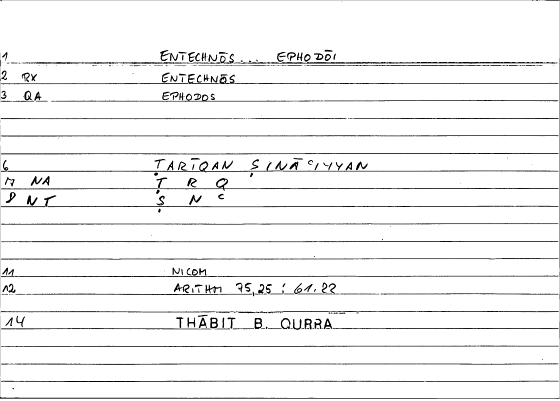 1 ENTECHNŌS ... EPHODŌI
2 RX ENTECHNŌS
3 QA EPHODOS
6 ṬARĪQAN ṢINĀʿIYYAN
7 NA Ṭ R Q
8 NT Ṣ N ʿ
11 NICOM
12 ARITHM 75,25 : 61.22
14 THĀBIT B. QURRA